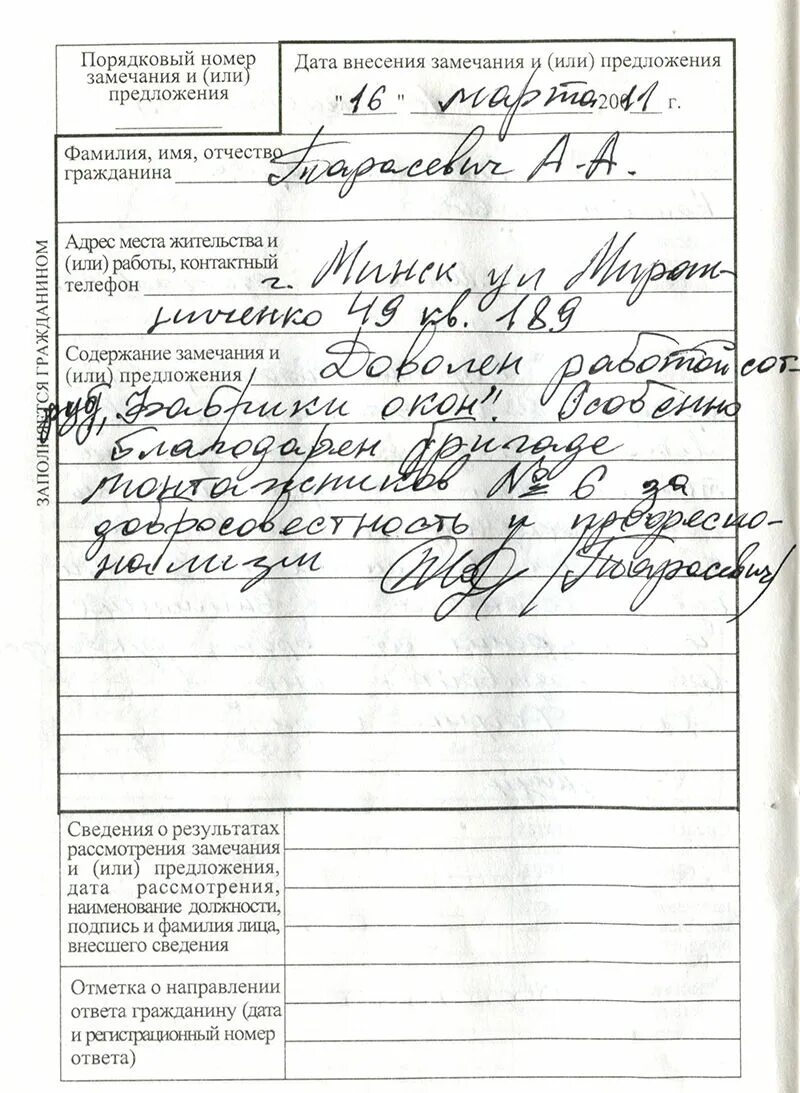 Порядковый номер
замечания и (или)
предложения
Дата внесения замечания и (или) предложения
"16" марта 2011 г.
Фамилия, имя, отчество
гражданина Тарасевич А.А.
Адрес места жительства и
(или) работы, контактный
телефон г. Минск ул Мирош-
ниченко 49 кв. 189
Содержание замечания и
(или) предложения Доволен работой сот-
руд. "Фабрики окон". Особенно
благодарен бригаде
монтажников № 6 за
добросовестность и професио-
нализм (Тарасевич)
ЗАПОЛНЯЕТСЯ ГРАЖДАНИНОМ
Сведения о результатах
рассмотрения замечания
и (или) предложения,
дата рассмотрения,
наименование должности,
подпись и фамилия лица,
внесшего сведения
Отметка о направлении
ответа гражданину (дата
и регистрационный номер
ответа)